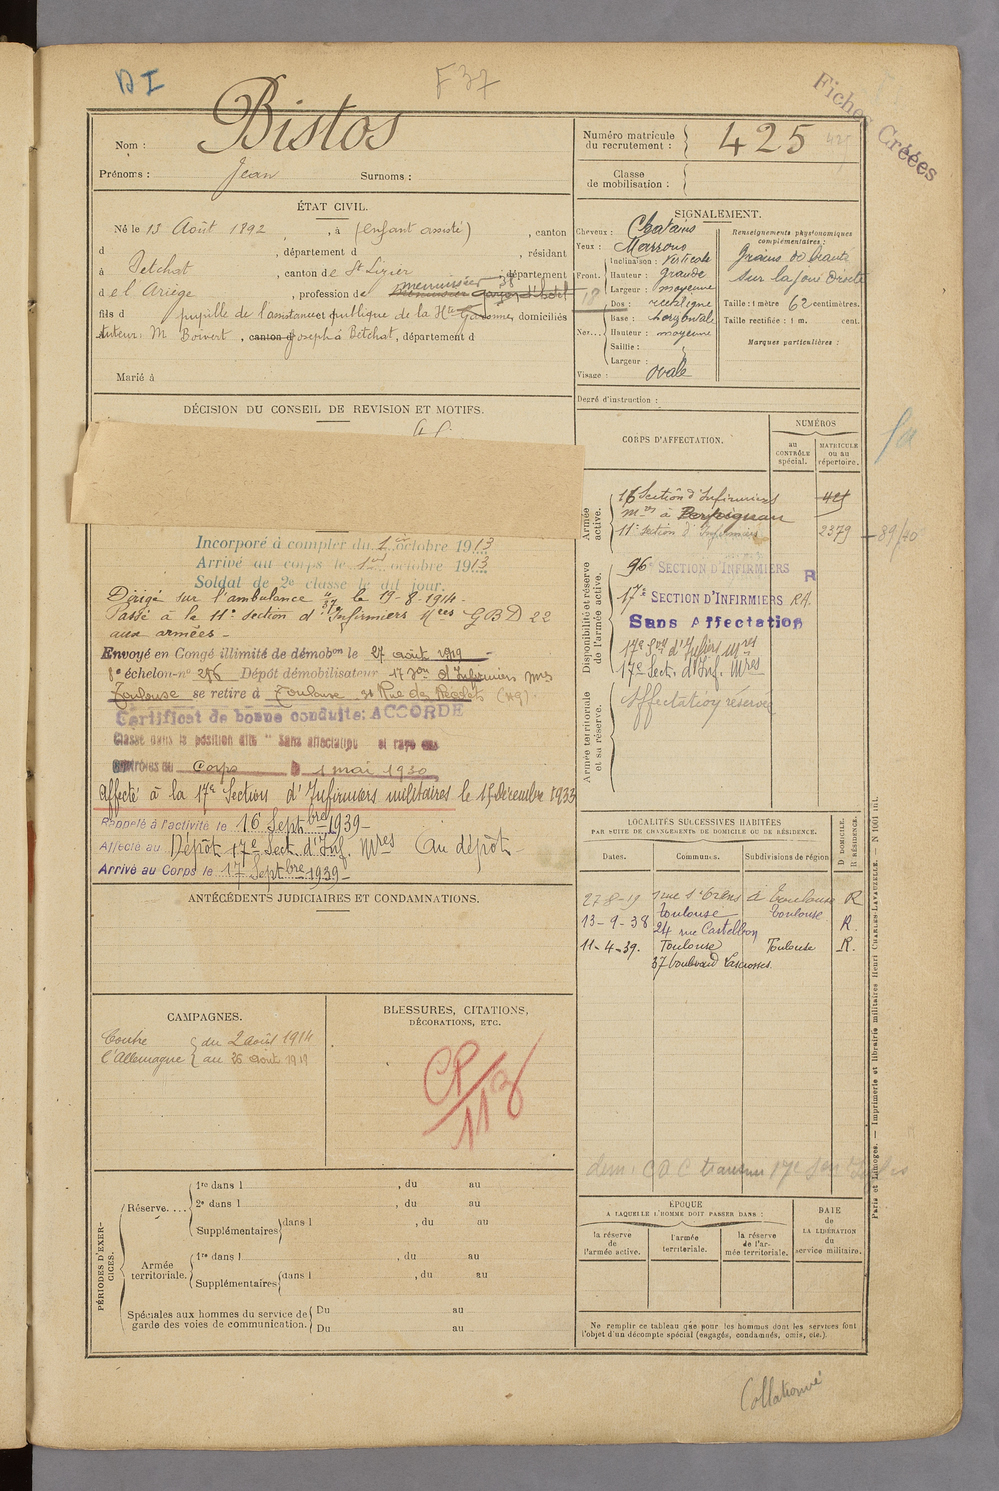 DI
F 37
Fiches Créées
Nom : Bistos
Prénoms : Jean Surnoms :
Numéro matricule du recrutement : 425
Classe de mobilisation :
ÉTAT CIVIL.
Né le 13 Août 1892, à (enfant assisté), canton
d , département d , résidant
à Betchat, canton de St Lizier, département
menuisier
del Ariège, profession de
fils d pupille de l'assistance publique de la Hte Garonne, domiciliés
tuteur: M. Boivert, canton d Joseph à Betchat, département d
Marié à
SIGNALEMENT.
Cheveux : Chatains
Yeux : Marrons
Front. Inclinaison : Verticale
Hauteur : grande
Largeur : moyenne
18
Nez... Dos : rectiligne
Base : horizontale
Hauteur : moyenne
Saillie :
Largeur :
Visage : ovale
Renseignements physionomiques complémentaires :
grains de beauté
sur la joue droite
Taille : 1 mètre 62 centimètres.
Taille rectifiée : 1 m. cent.
Marques particulières :
Degré d'instruction :
DÉCISION DU CONSEIL DE REVISION ET MOTIFS.
Incorporé à compter du 1er octobre 1913
Arrivé au corps le 1er octobre 1913
Soldat de 2e classe le dit jour.
Dirigé sur l'ambulance le 19-8-1914.
Passé à la 11e section d'Infirmiers Mres GBD 22
aux armées -
Envoyé en Congé illimité de démobon le 27 août 1919
8e échelon no 296 Dépôt démobilisateur 17 son d'Infirmiers mres
Toulouse se retire à Toulouse 31 Rue des (Hg).
Certificat de bonne conduite: ACCORDÉ
Classé dans la position dite "Sans affectation" et rayé des
contrôles du Corps le 1 mai 1930
Affecté à la 17e Section d'Infirmiers militaires le 15 décembre 1933
Rappelé à l'activité le 16 Septbre 1939 -
Affecté au Dépôt 17e Sect. d'Inf. Mres (au dépôt -
Arrivé au Corps le 17 Septbre 1939 -
CORPS D'AFFECTATION.
NUMÉROS
au CONTRÔLE spécial.
MATRICULE ou au répertoire.
Armée active.
16 Section d'Infirmiers
mres à Perpignan
11e section d'Infirmiers 2379
89/40
Disponibilité et réserve de l'armée active.
96 SECTION D'INFIRMIERS R
17e SECTION D'INFIRMIERS RA.
Sans Affectation
17e Son d'Infirs Mres
17e Sect. d'Inf. Mres
Armée territoriale et sa réserve.
Affectation réservée
LOCALITÉS SUCCESSIVES HABITÉES
PAR SUITE DE CHANGEMENTS DE DOMICILE OU DE RÉSIDENCE.
Dates. Communes. Subdivisions de région
D DOMICILE. R RÉSIDENCE.
27-8-19 à Toulouse R
13-9-38 Toulouse Toulouse R.
24 rue Castellbon
11-4-39. Toulouse Toulouse R.
37 boulevard Lascrosses.
ANTÉCÉDENTS JUDICIAIRES ET CONDAMNATIONS.
CAMPAGNES.
Contre l'Allemagne du 2 août 1914
au 26 Août 1919
BLESSURES, CITATIONS, DÉCORATIONS, ETC.
CP
113
PÉRIODES D'EXERCICES.
Réserve.... 1re dans l , du au
2e dans l , du au
Supplémentaires dans l , du au
Armée territoriale. 1re dans l , du au
Supplémentaires dans l , du au
Spéciales aux hommes du service de garde des voies de communication. Du au
Du au
ÉPOQUE
A LAQUELLE L'HOMME DOIT PASSER DANS :
la réserve de l'armée active.
l'armée territoriale.
la réserve de l'armée territoriale.
DATE de LA LIBÉRATION du service militaire.
Ne remplir ce tableau que pour les hommes dont les services font l'objet d'un décompte spécial (engagés, condamnés, omis, etc.).
Paris et Limoges. — Imprimerie et librairie militaires Henri CHARLES-LAVAUZELLE. — N 1001 bil.
Collationné